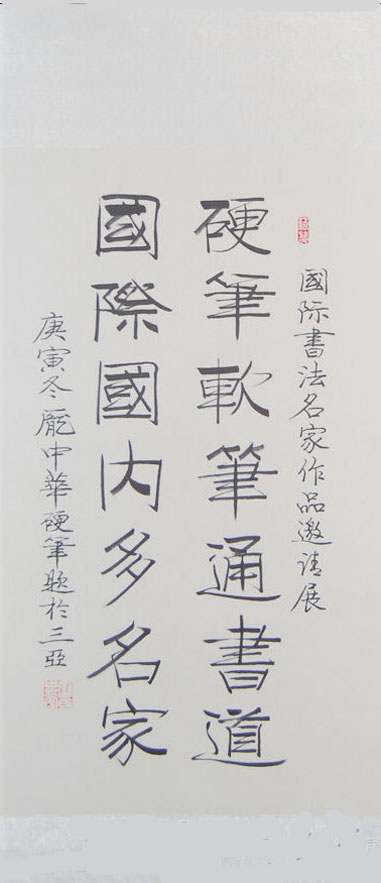 國际書法名家作品邀請展
硬筆軟筆通書道
國際國内多名家
庚寅冬龐中華硬筆題於三亞